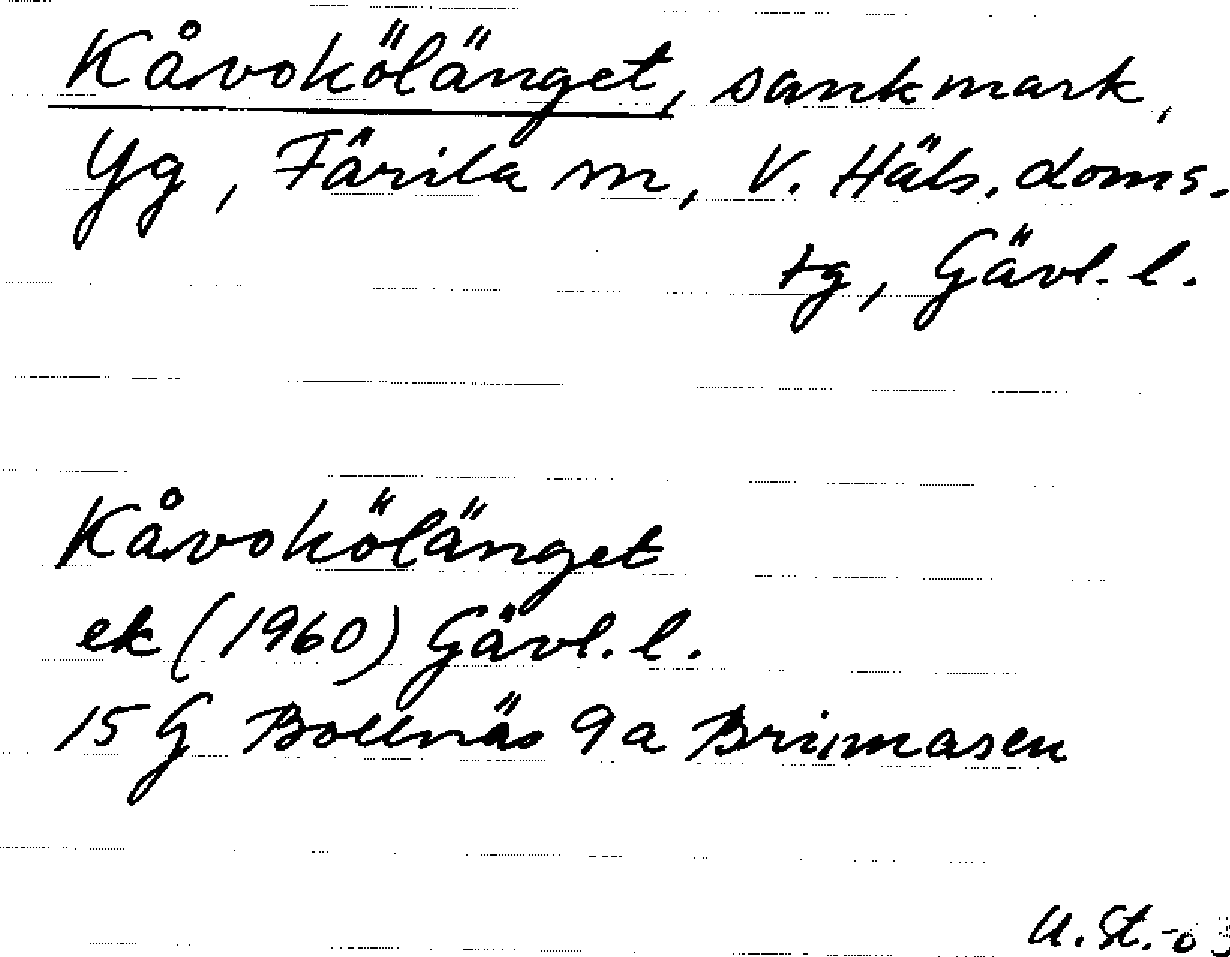 Kåvokölänget, sankmark,
Yg, Färila sn, V. Häls. doms.
tg, Gävl. l.
Kåvokölänget
ek (1960) Gävl. l.
15 G Bollnäs 9 a
U. St. -63